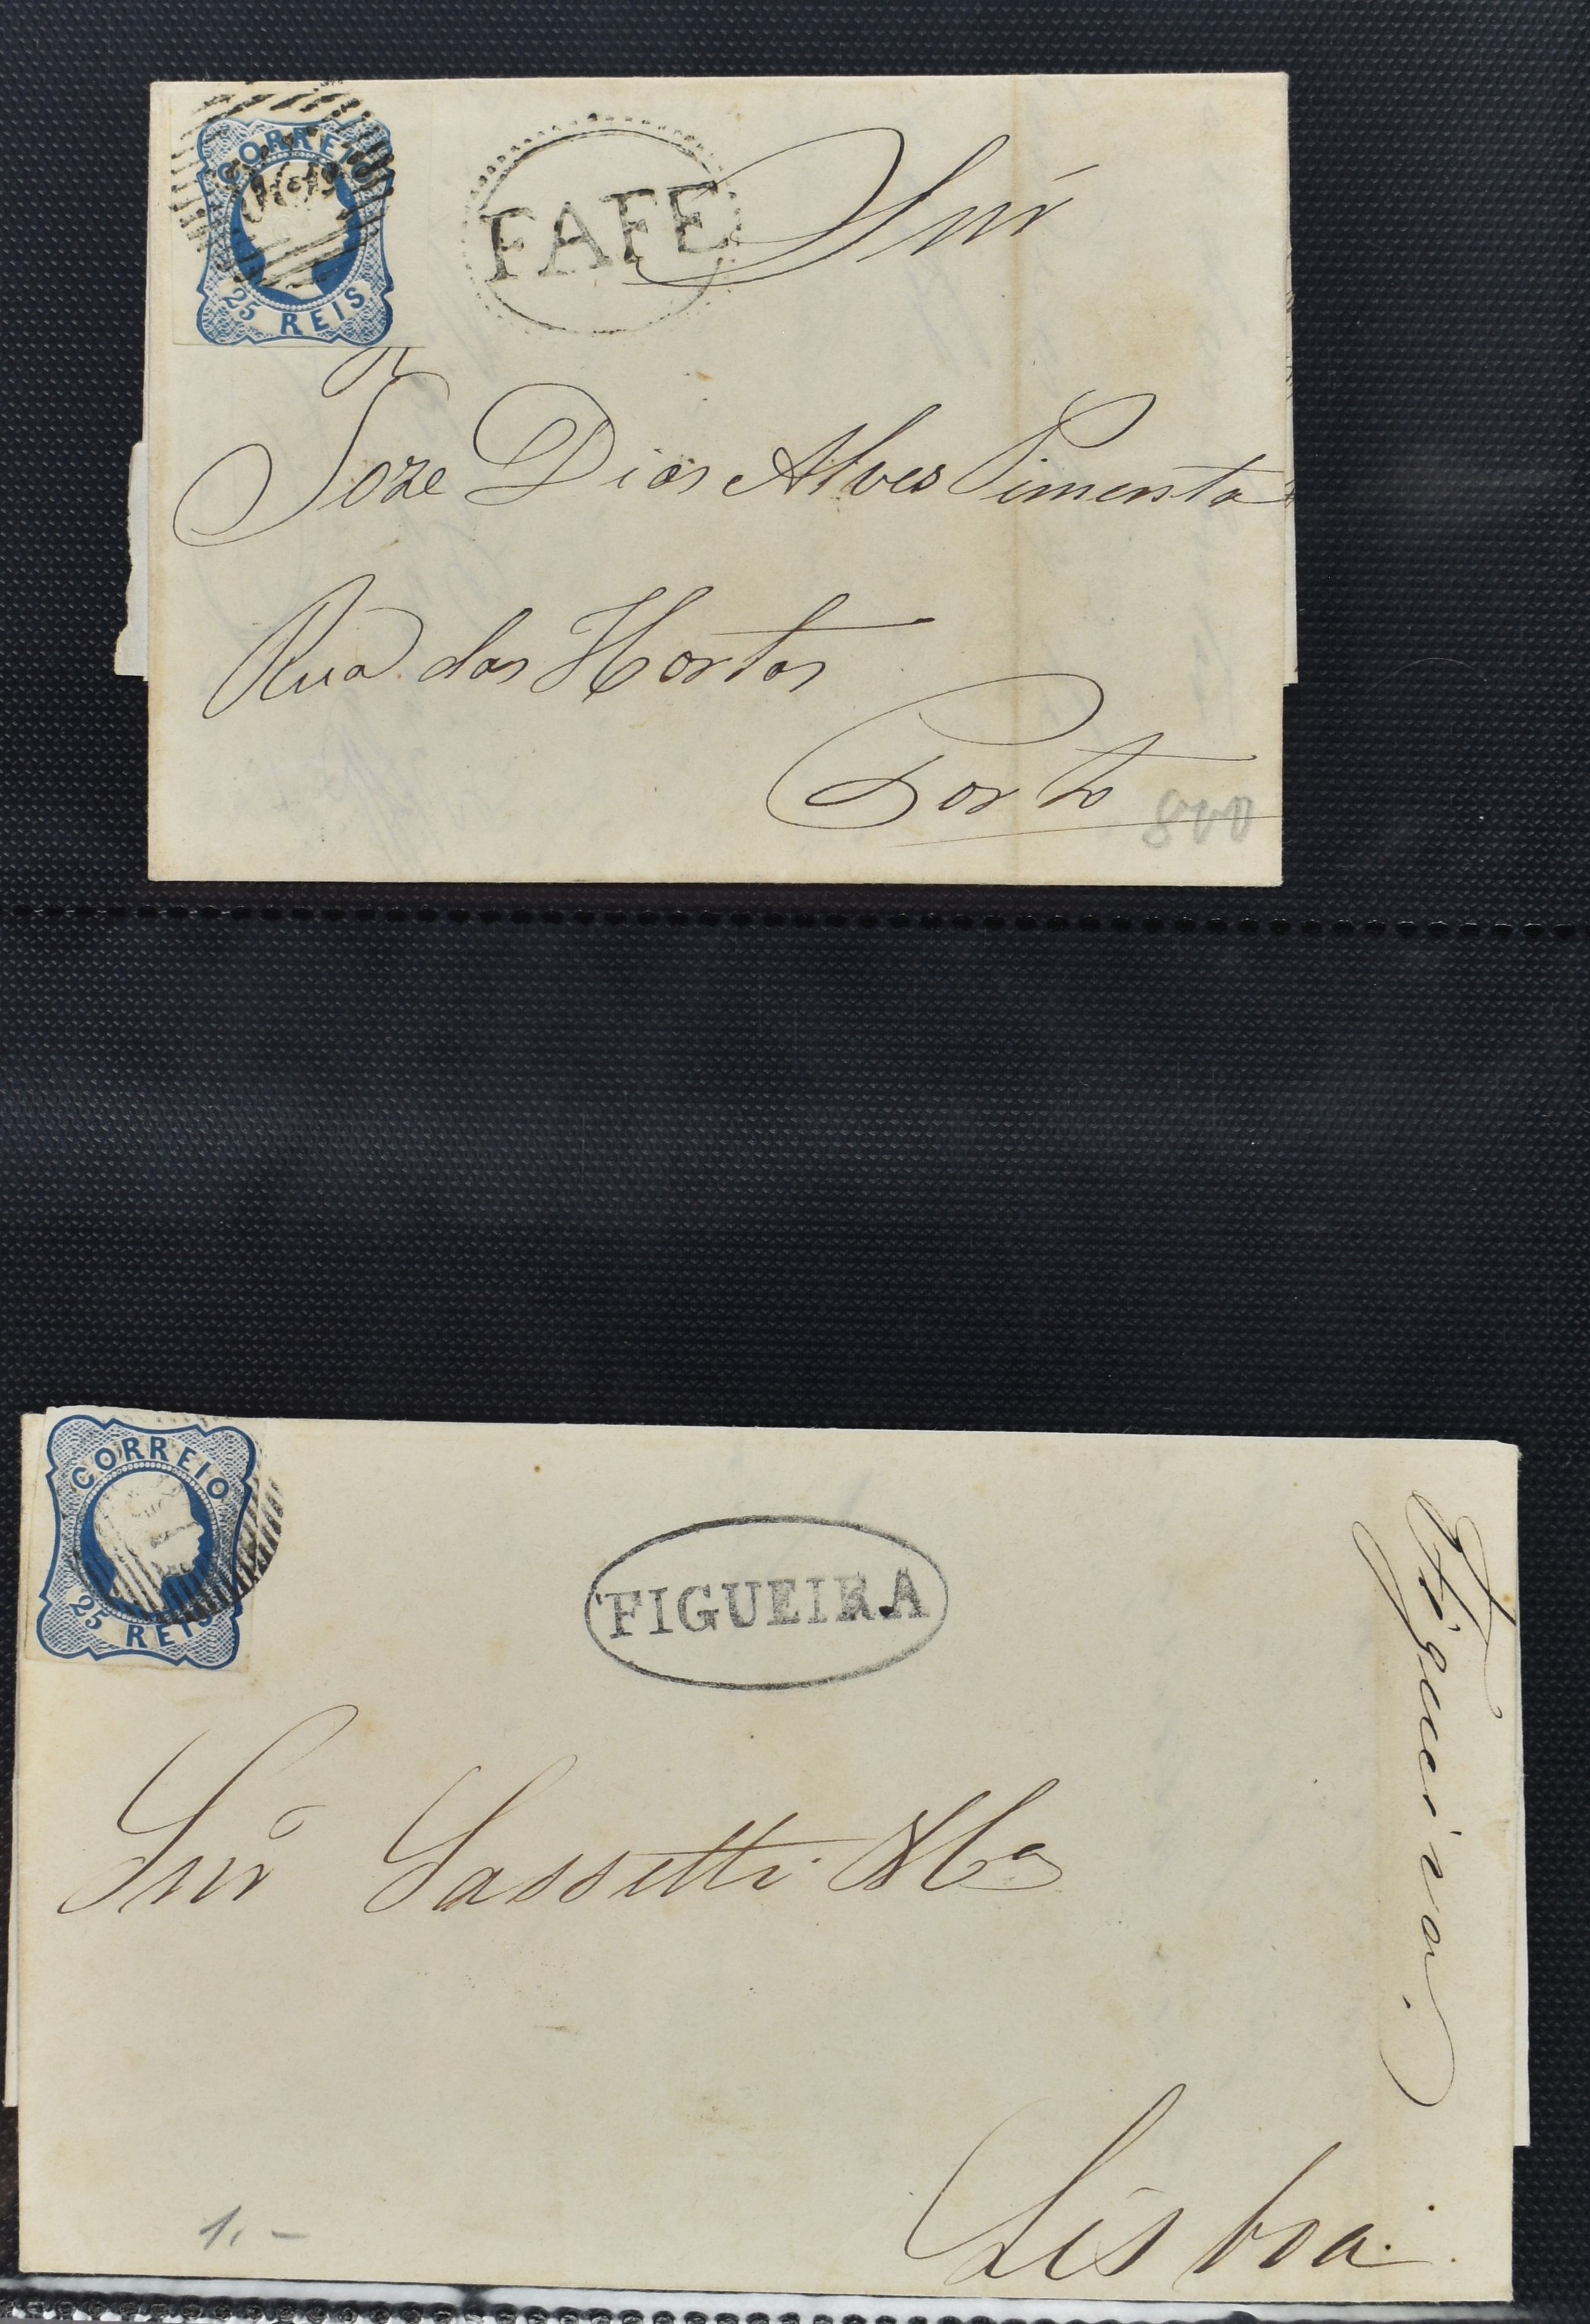 CORREIO
25 REIS
FAFE
Snr
Joze Dias Alves Pimenta
Rua das Hortas
Porto
800
CORREIO
25 REIS
FIGUEIRA
Figueira.
Snr Sassetti & Ca
Lisboa.
1.-